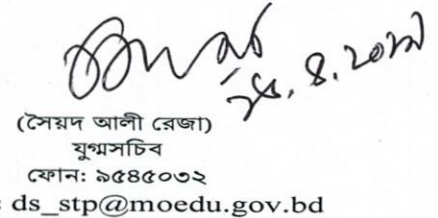 (সৈয়দ আলী রেজা)
যুগ্মসচিব
ফোন: ৯৫৪৫০৩২
: ds_stp@moedu.gov.bd